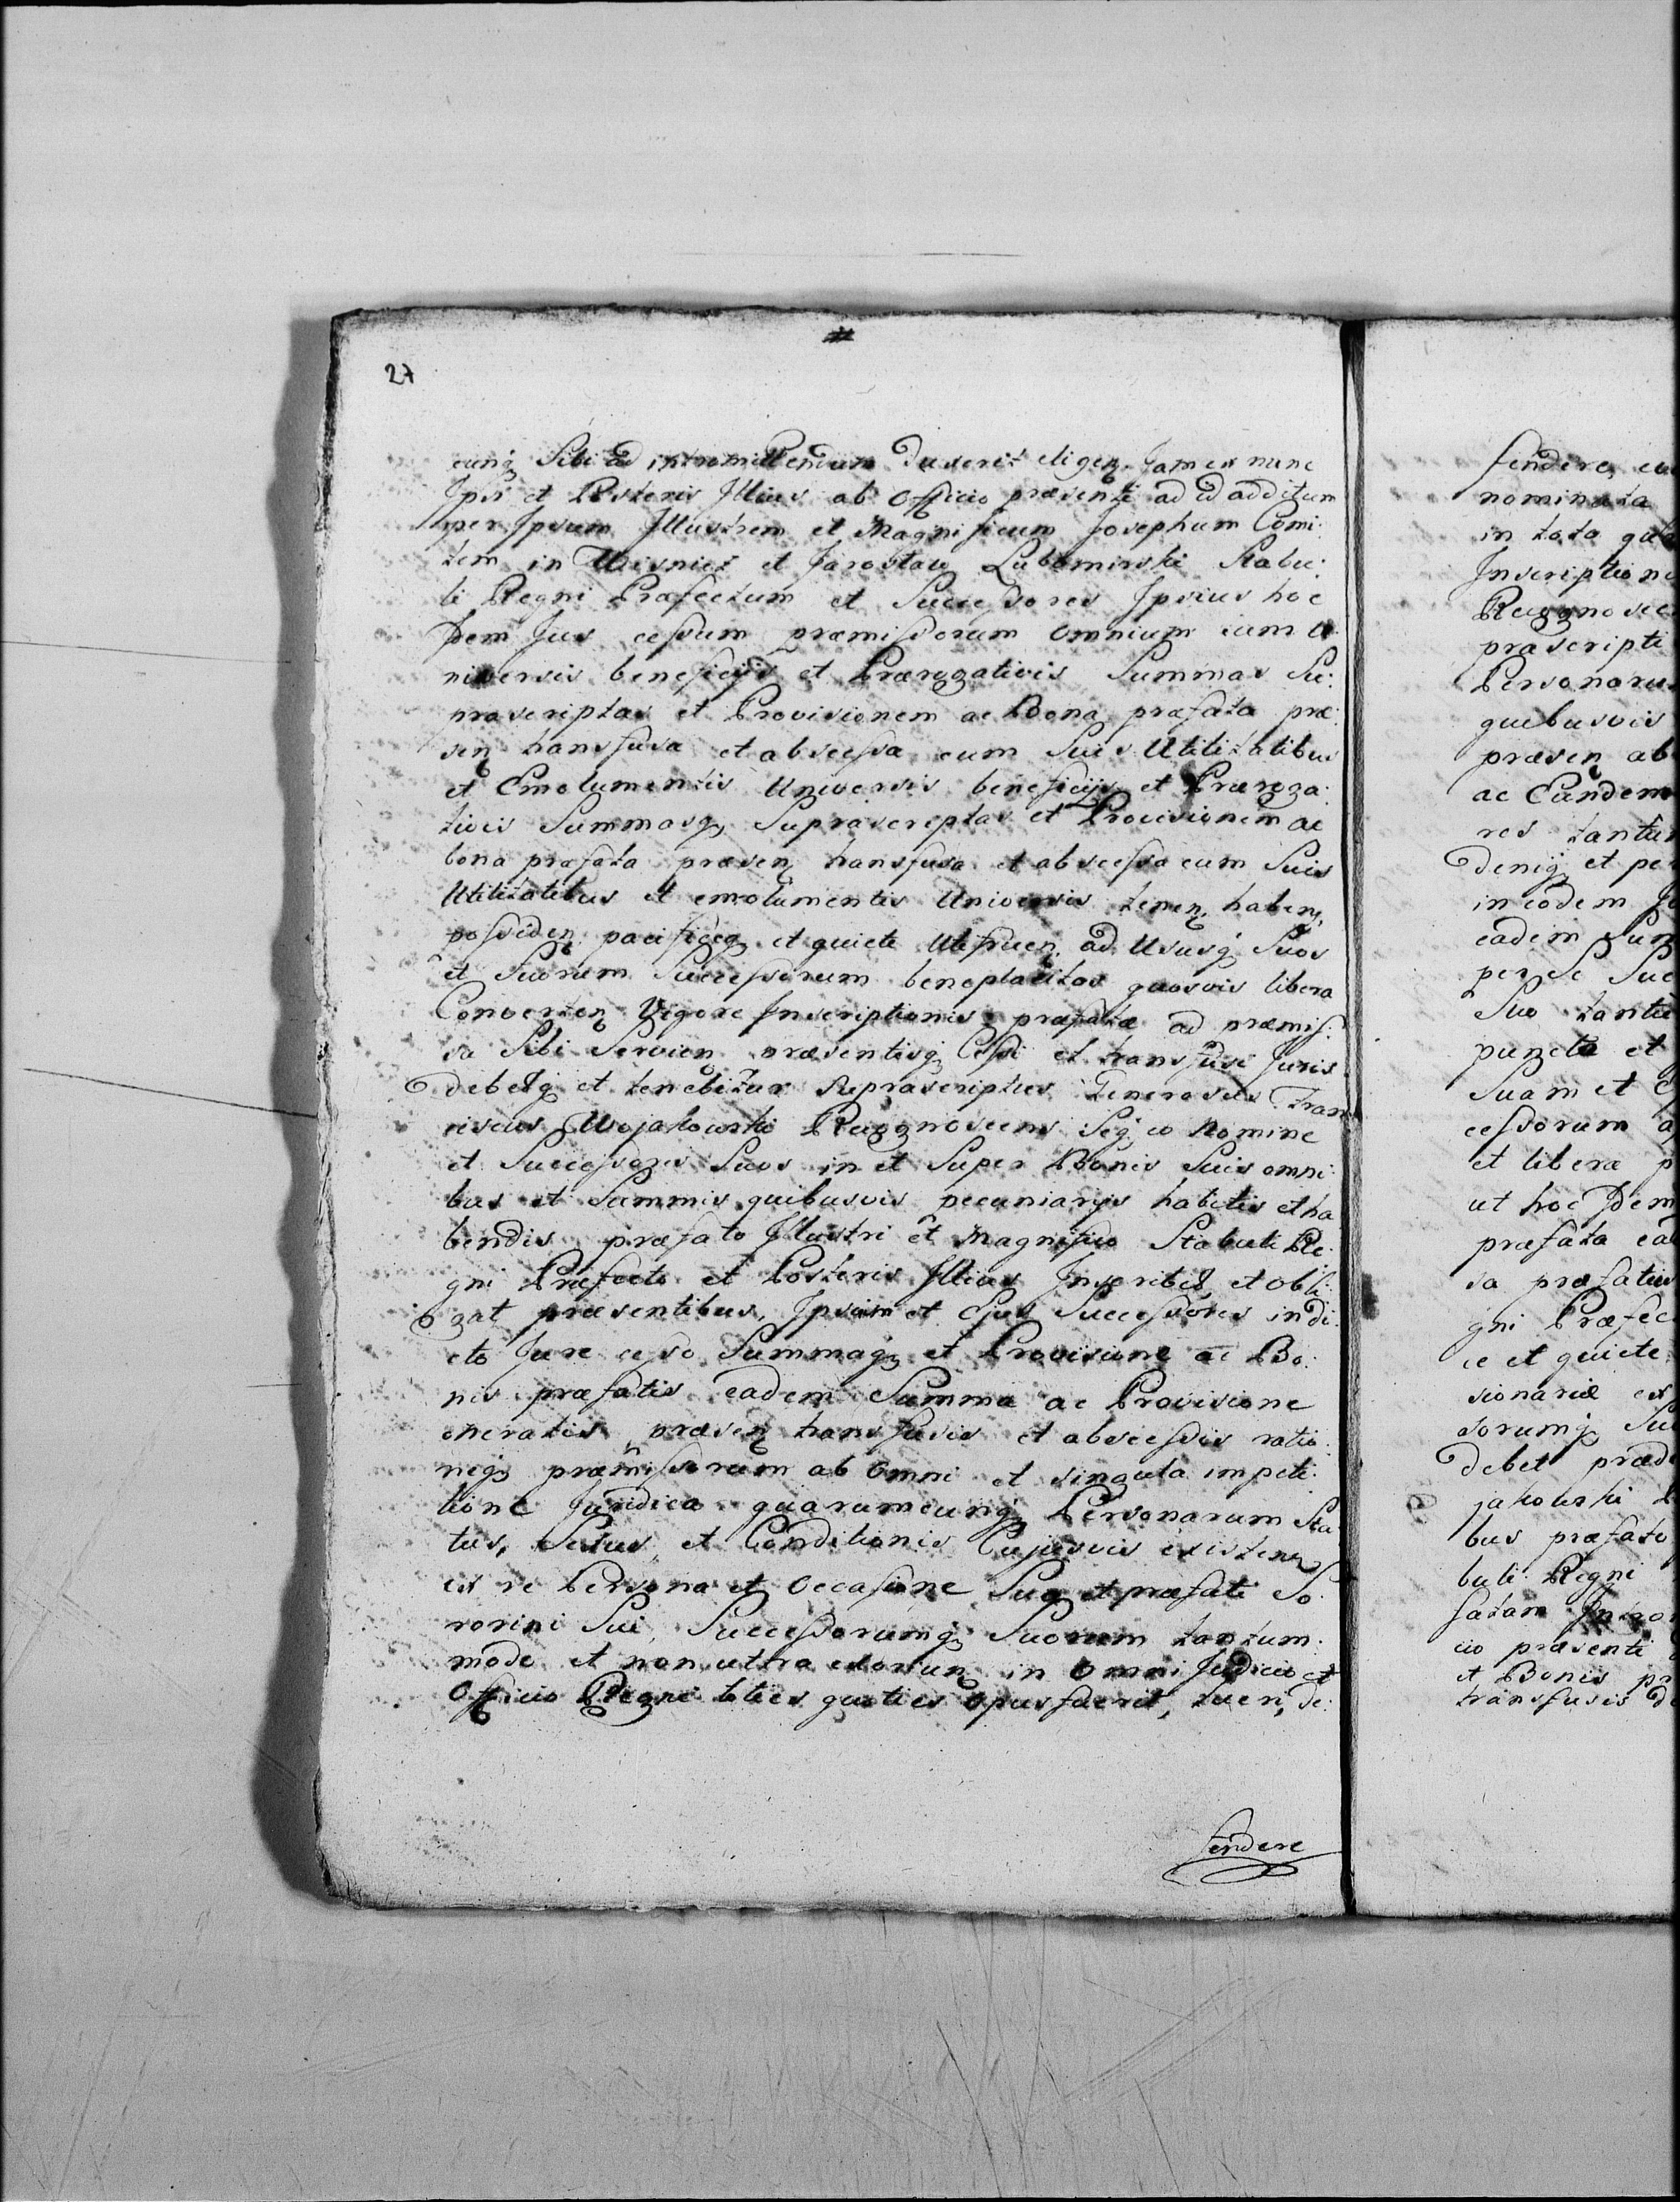 27
cunq; Sibi ad intromittendum duxerit eligen. Jam ex nunc
Ipsi et Posteris Illius ab Officio præsenti ad id additum
per Ipsum Illustrem et Magnificum Josephum Comi:
tem in Wisnicz et Jarosław Lubomirski Stabu:
li Regni Præfectum et Successores Ipsius hoc
idem Jus cessum præmissorum omnium cum u:
niversis beneficijs et Prærogativis Summas Su:
prascriptas et Provisionem ac Bona præfata præ:
sen transfusa et abscessa cum Suis Utilitatibus
et Emolumentis Universis beneficijs et Præroga:
tivis Summasq; Suprascriptas et Provisionem ac
bona præfata præsen transfusa et abscessa cum Suis
Utilitatibus et emolumentis Universis tenen. haben,
possiden pacificeq; et quiete Utifruen ad Ususq; Suos
et Suorum Successorum beneplacitos quosvis libera
Converten Vigore Inscriptionis præfatæ ad præmis:
sa Sibi Servien præsentisq; Cessi et transfusi Juris
debetq; et tenebitur Suprascriptus Generosus Fran
ciscus Wojakowski Recognoscens Seq; eo Nomine
et Successores Suos in et Super Bonis Suis omni:
bus et Summis quibusvis pecuniarijs habitis et ha
bendis præfato Illustri et Magnifico Stabuli Re:
gni Præfecto et Posteris Illius Inscribit et obli:
gat præsentibus, Ipsum et Ejus Successores in di:
cto Jure cesso Summaq; et Provisione ac Bo:
nis præfatis eadem Summa ac Provisione
oneratis præsen transfusis et abscessis ratio:
neq; præmissorum ab omni et singula impeti:
tione Juridica quarumcunq; Personarum Sta
tus, Sexus et Conditionis Cujusvis existen
ex re Persona et Occasione Sua et præfati So:
rorini Sui, Successorumq; Suorum tantum:
modo et non ultra exorsun in omni Judicio et
Officio Regni toties quoties opus fuerit, tueri, de:
fendere
fendere, eu
nominata
in toto
Inscriptione
Recognosce
præscripti
Personaru
quibusvis
præsen ab
ac Eundem
res tantum
deniq; et per
in eodem Ju
eadem Sum
per Se Suc
Suo tantu
puncta et
Suam et E
cessorum
et liberæ p
ut hoc Idem
præfata ea
sa præfatus
gni Præfec
ce et quiete
sionariæ ex
sorumq; Su
debet præd
jakowski
bus præfato
buli Regni
fatam Intro
cio præsenti
et Bonis pr
transfusis de